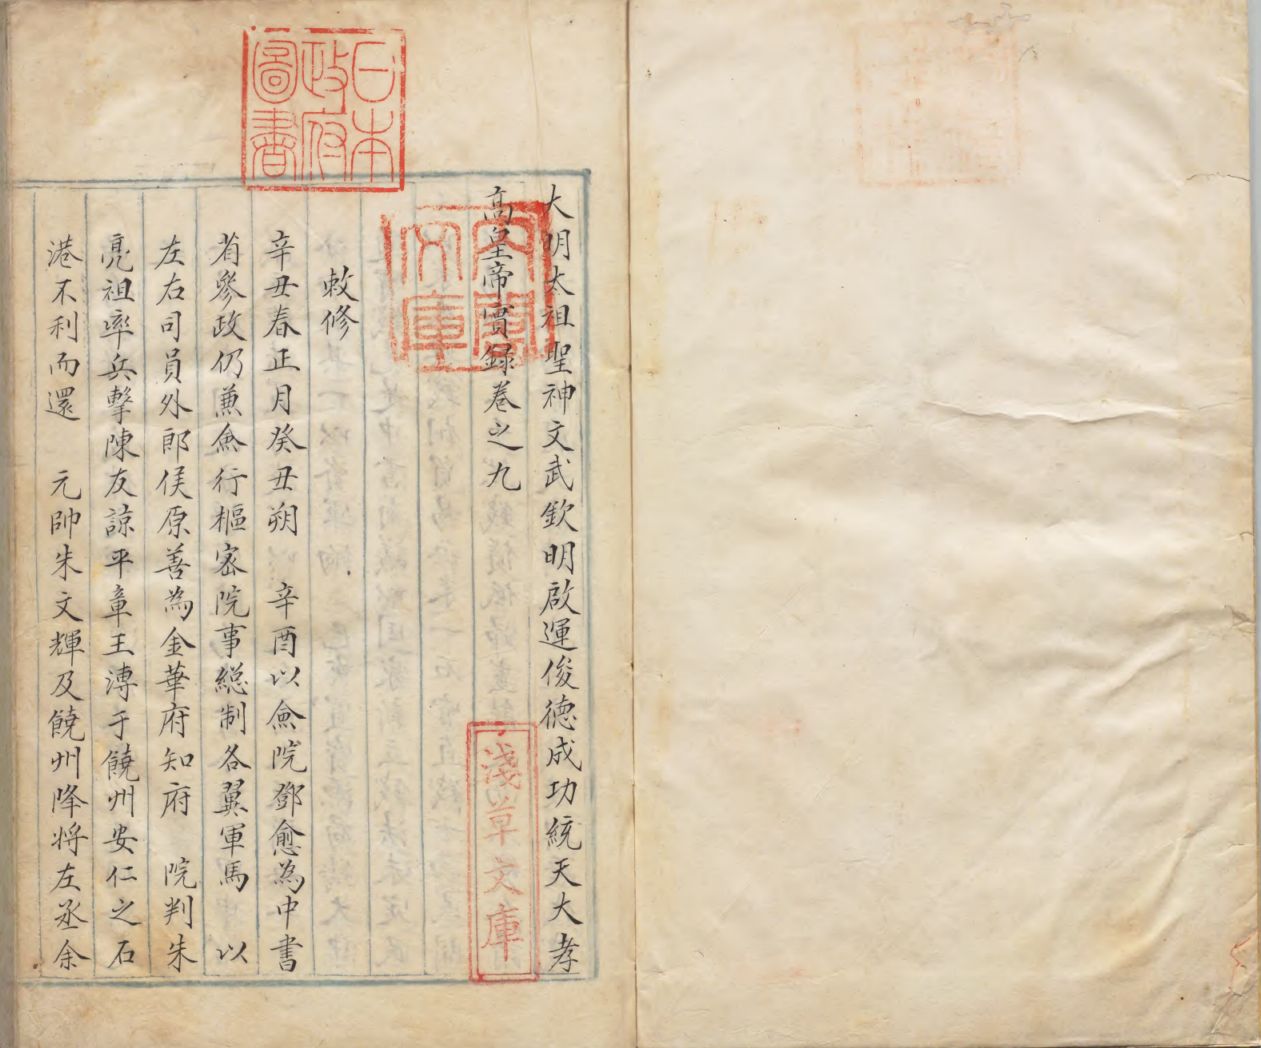 大明太祖聖神文武欽明啟運俊德成功統天大孝
高皇帝實錄卷之九
敕修
辛丑春正月癸丑朔　辛酉以僉院鄧愈為中書
省參政仍兼僉行樞密院事總制各翼軍馬　以
左右司員外郎侯原善為金華府知府　院判朱
亮祖率兵擊陳友諒平章王溥于饒州安仁之石
港不利而還　元帥朱文輝及饒州降將左丞余
日本
政府
圖書
內閣
文庫
淺草文庫